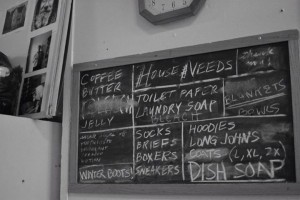 COFFEE
BUTTER
JELLY
WINTER BOOTS
#HOUSE#NEEDS
TOILET PAPER
LAUNDRY SOAP
BLEACH
SOCKS
BRIEFS
BOXERS
SNEAKERS
THANK
BLANKETS
BOWLS
HOODIES
LONG JOHNS
COATS (L, XL, 2X)
DISH SOAP